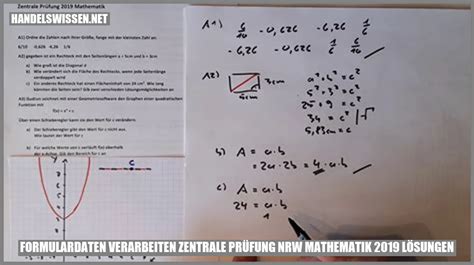 HANDELSWISSEN.NET
Zentrale Prüfung 2019 Mathematik
A1) Ordne die Zahlen nach ihrer Größe, fange mit der kleinsten Zahl an:
6/10 -0,626 -6,26 1/6
A2) gegeben ist ein Rechteck mit den Seitenlängen a = 5cm und b = 3cm
a) Wie groß ist die Diagonal d
b) Wie verändert sich die Fläche des Rechtecks, wenn jede Seitenlänge
verdoppelt wird
c) Ein anderes Rechteck hat einen Flächeninhalt von 24 cm² Wie lang
könnten die Seiten sein? Gib zwei verschiedene Lösungsmöglichkeiten an
A3) Gudrun zeichnet mit einer Geometriesoftware den Graphen einer quadratischen
Funktion mit
f(x) = x² + c
Über einen Schieberegler kann sie den Wert für c verändern.
a) Der Schieberegler gibt den Wert für c nicht aus.
Wie lautet der Wert für c
b) Für welche Werte von c verläuft f(x) oberhalb
der x-Achse. Gib den Bereich für c an
C
A1) 6/10 -0,626 -6,26 1/6
-6,26 -0,626 1/6 6/10
A2) 3cm
5cm
a² + b² = c²
5² + 3² = c²
25 + 9 = c²
34 = c² |√
5,83cm = c
b) A = a·b
= 2a · 2b = 4·a·b
c) A = a·b
24 = a·b
1
FORMULARDATEN VERARBEITEN ZENTRALE PRÜFUNG NRW MATHEMATIK 2019 LÖSUNGEN